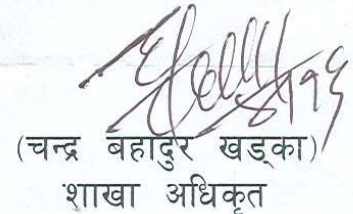 (चन्द्र बहादुर खड्का)
शाखा अधिकृत